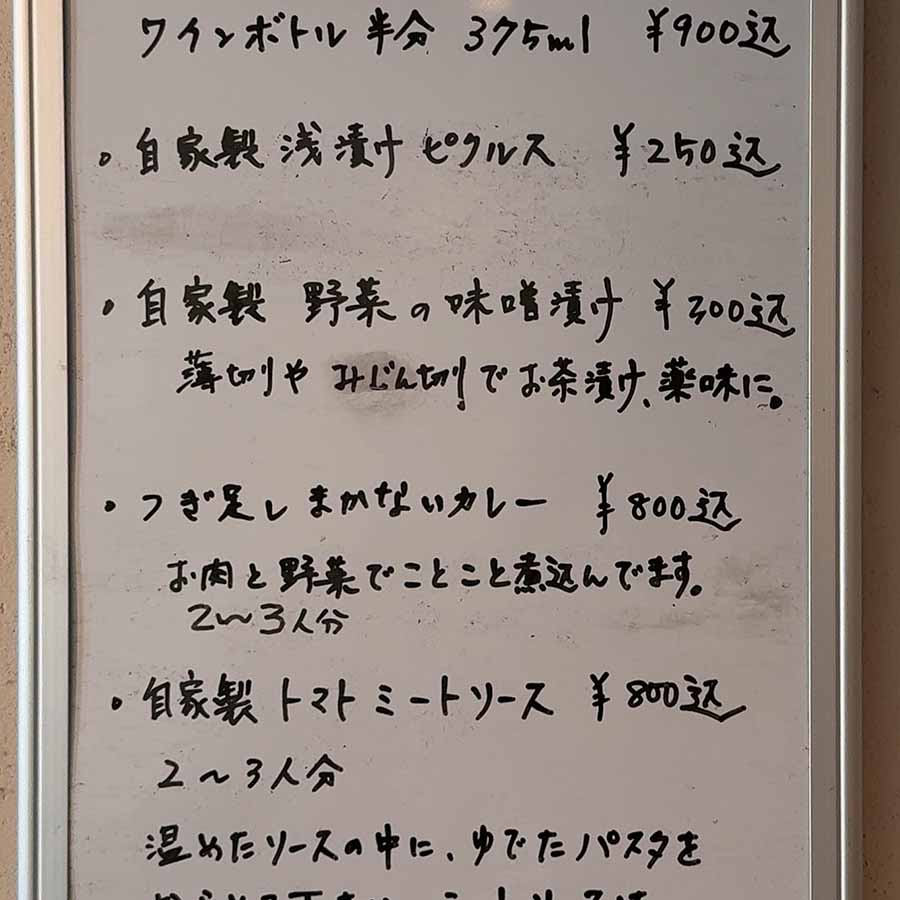 ワインボトル半分 375ml ¥900込
・自家製 浅漬け ピクルス ¥250込
・自家製 野菜の味噌漬け ¥300込
薄切りや みじん切りでお茶漬け、薬味に。
・つぎ足し まかないカレー ¥800込
お肉と野菜でことこと煮込んでます。
2〜3人分
・自家製 トマト ミートソース ¥800込
2〜3人分
温めたソースの中に、ゆでたパスタを